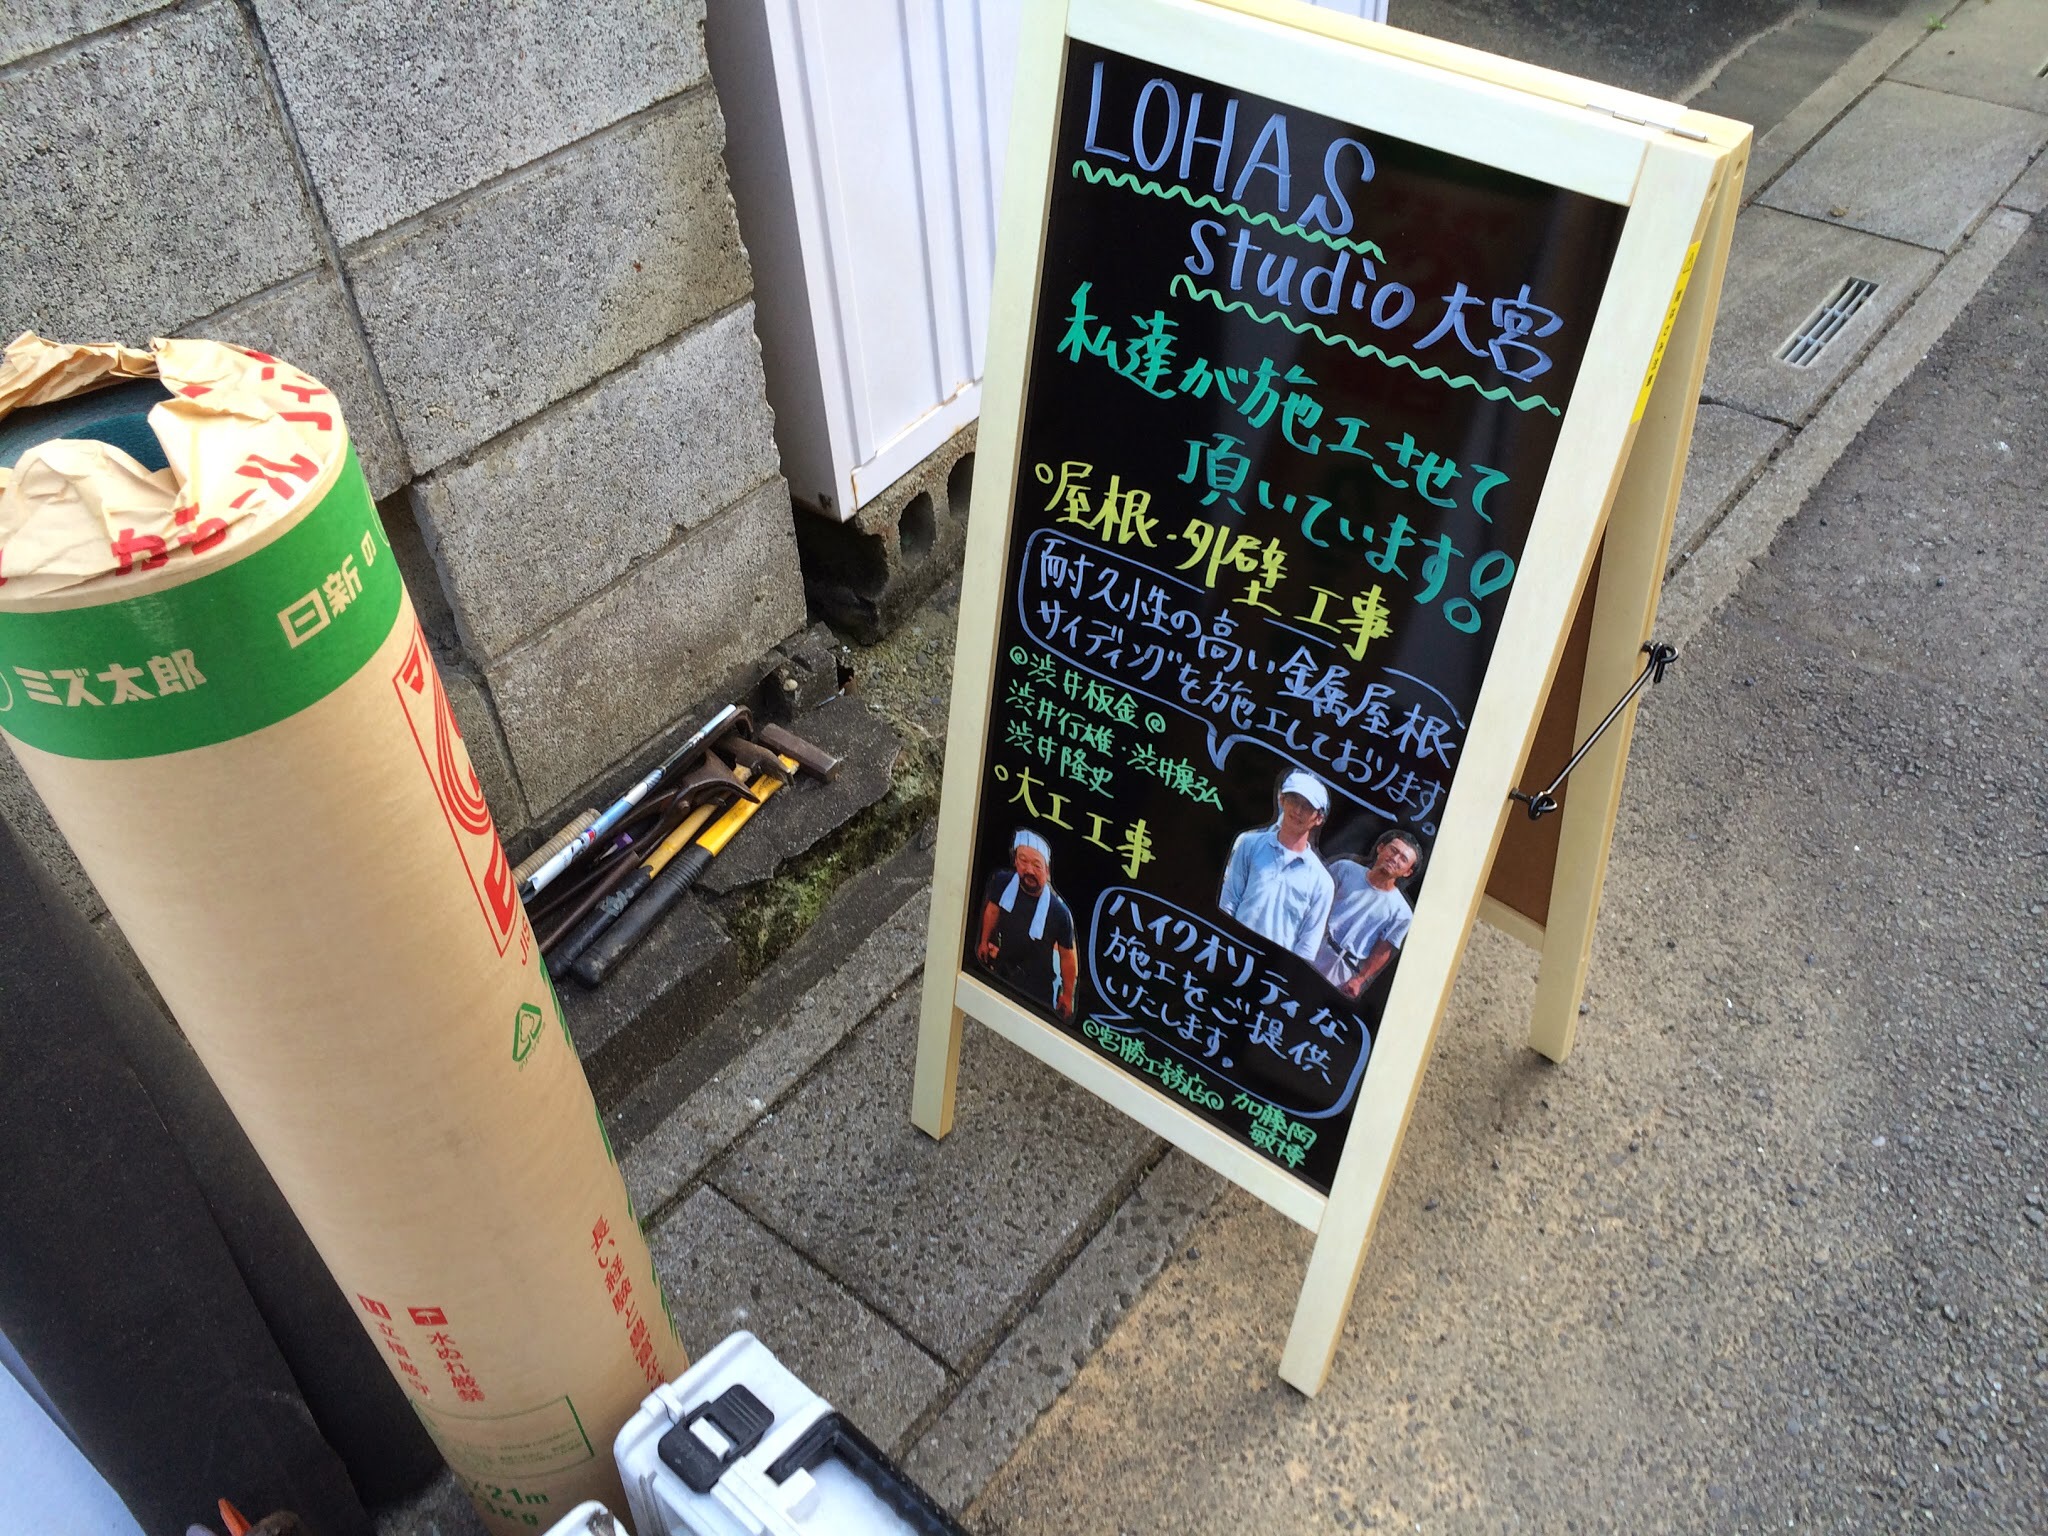 LOHAS
studio 大宮
私達が施工させて
頂いています!
屋根・外壁工事
耐久性の高い金属屋根
サイディングを施工しております。
◎渋井板金◎
渋井行雄・渋井康弘
渋井隆史
大工工事
ハイクオリティな
施工をご提供
いたします。
◎宮勝工務店◎ 加藤岡
敏博
日新の
ミズ太郎
JIS
長い経験と豊富な
水ぬれ厳禁
立積厳守
21m